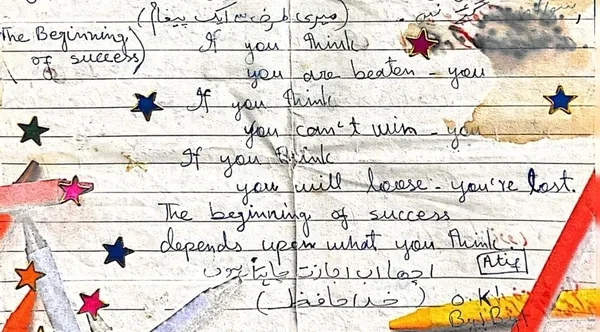 (میری طرف سے ایک پیغام)
The Beginning
of success)
If you think
you are beaten - you
If you think
you can't win - you
If you think
you will loose - you're lost.
The beginning of success
depends upon what you think.
Atif
اچھا اب اجازت چاہتا ہوں
(خدا حافظ)
O.K!
Bye Bye